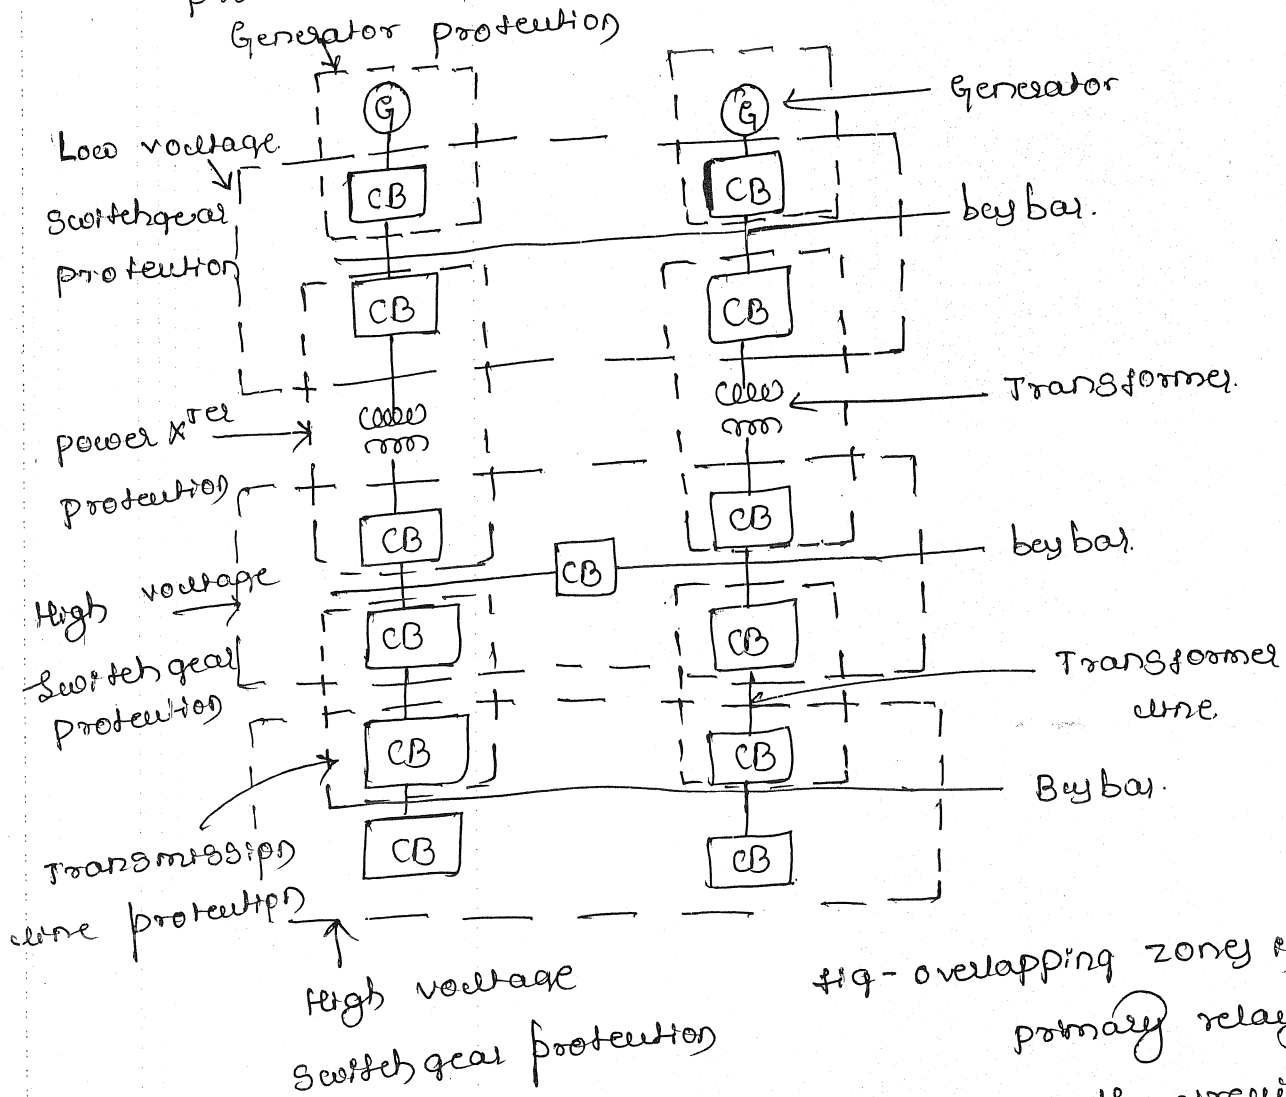 Generator protection
G
G
Generator
Low voltage
switchgear
protection
CB
CB
busbar.
CB
CB
Transformer.
power xTer
protection
CB
CB
CB
busbar.
High voltage
Switchgear
protection
CB
CB
Transformer
line
CB
CB
Busbar.
Transmission
line protection
CB
CB
High voltage
switchgear protection
fig - overlapping zones
primary relay